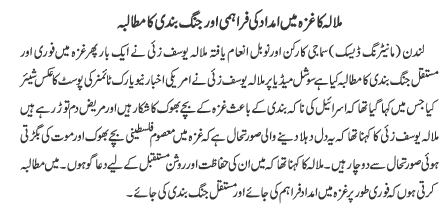 ملالہ کا غزہ میں امداد کی فراہمی اور جنگ بندی کا مطالبہ
لندن (مانیٹرنگ ڈیسک) سماجی کارکن اور نوبل انعام یافتہ ملالہ یوسف زئی نے ایک بار پھر غزہ میں فوری اور
مستقل جنگ بندی کا مطالبہ کیا ہے سوشل میڈیا پر ملالہ یوسف زئی نے امریکی اخبار نیو یارک ٹائمنر کی پوسٹ کا عکس شیئر
کیا جس میں کہا گیا تھا کہ اسرائیل کی ناکہ بندی کے باعث غزہ کے بچے بھوک کا شکار ہیں اور مریض دم توڑ رہے ہیں
ملالہ یوسف زئی کا کہنا تھا کہ یہ دل دہلا دینے والی صورتحال ہے کہ غزہ میں معصوم فلسطینی بچے بھوک اور موت کی بگڑتی
ہوئی صورتحال سے دوچار ہیں۔ ملالہ کا کہنا تھا کہ میں ان کی حفاظت اور روشن مستقبل کے لیے دعا گو ہوں۔ میں مطالبہ
کرتی ہوں کہ فوری طور پر غزہ میں امداد فراہم کی جائے اور مستقل جنگ بندی کی جائے۔